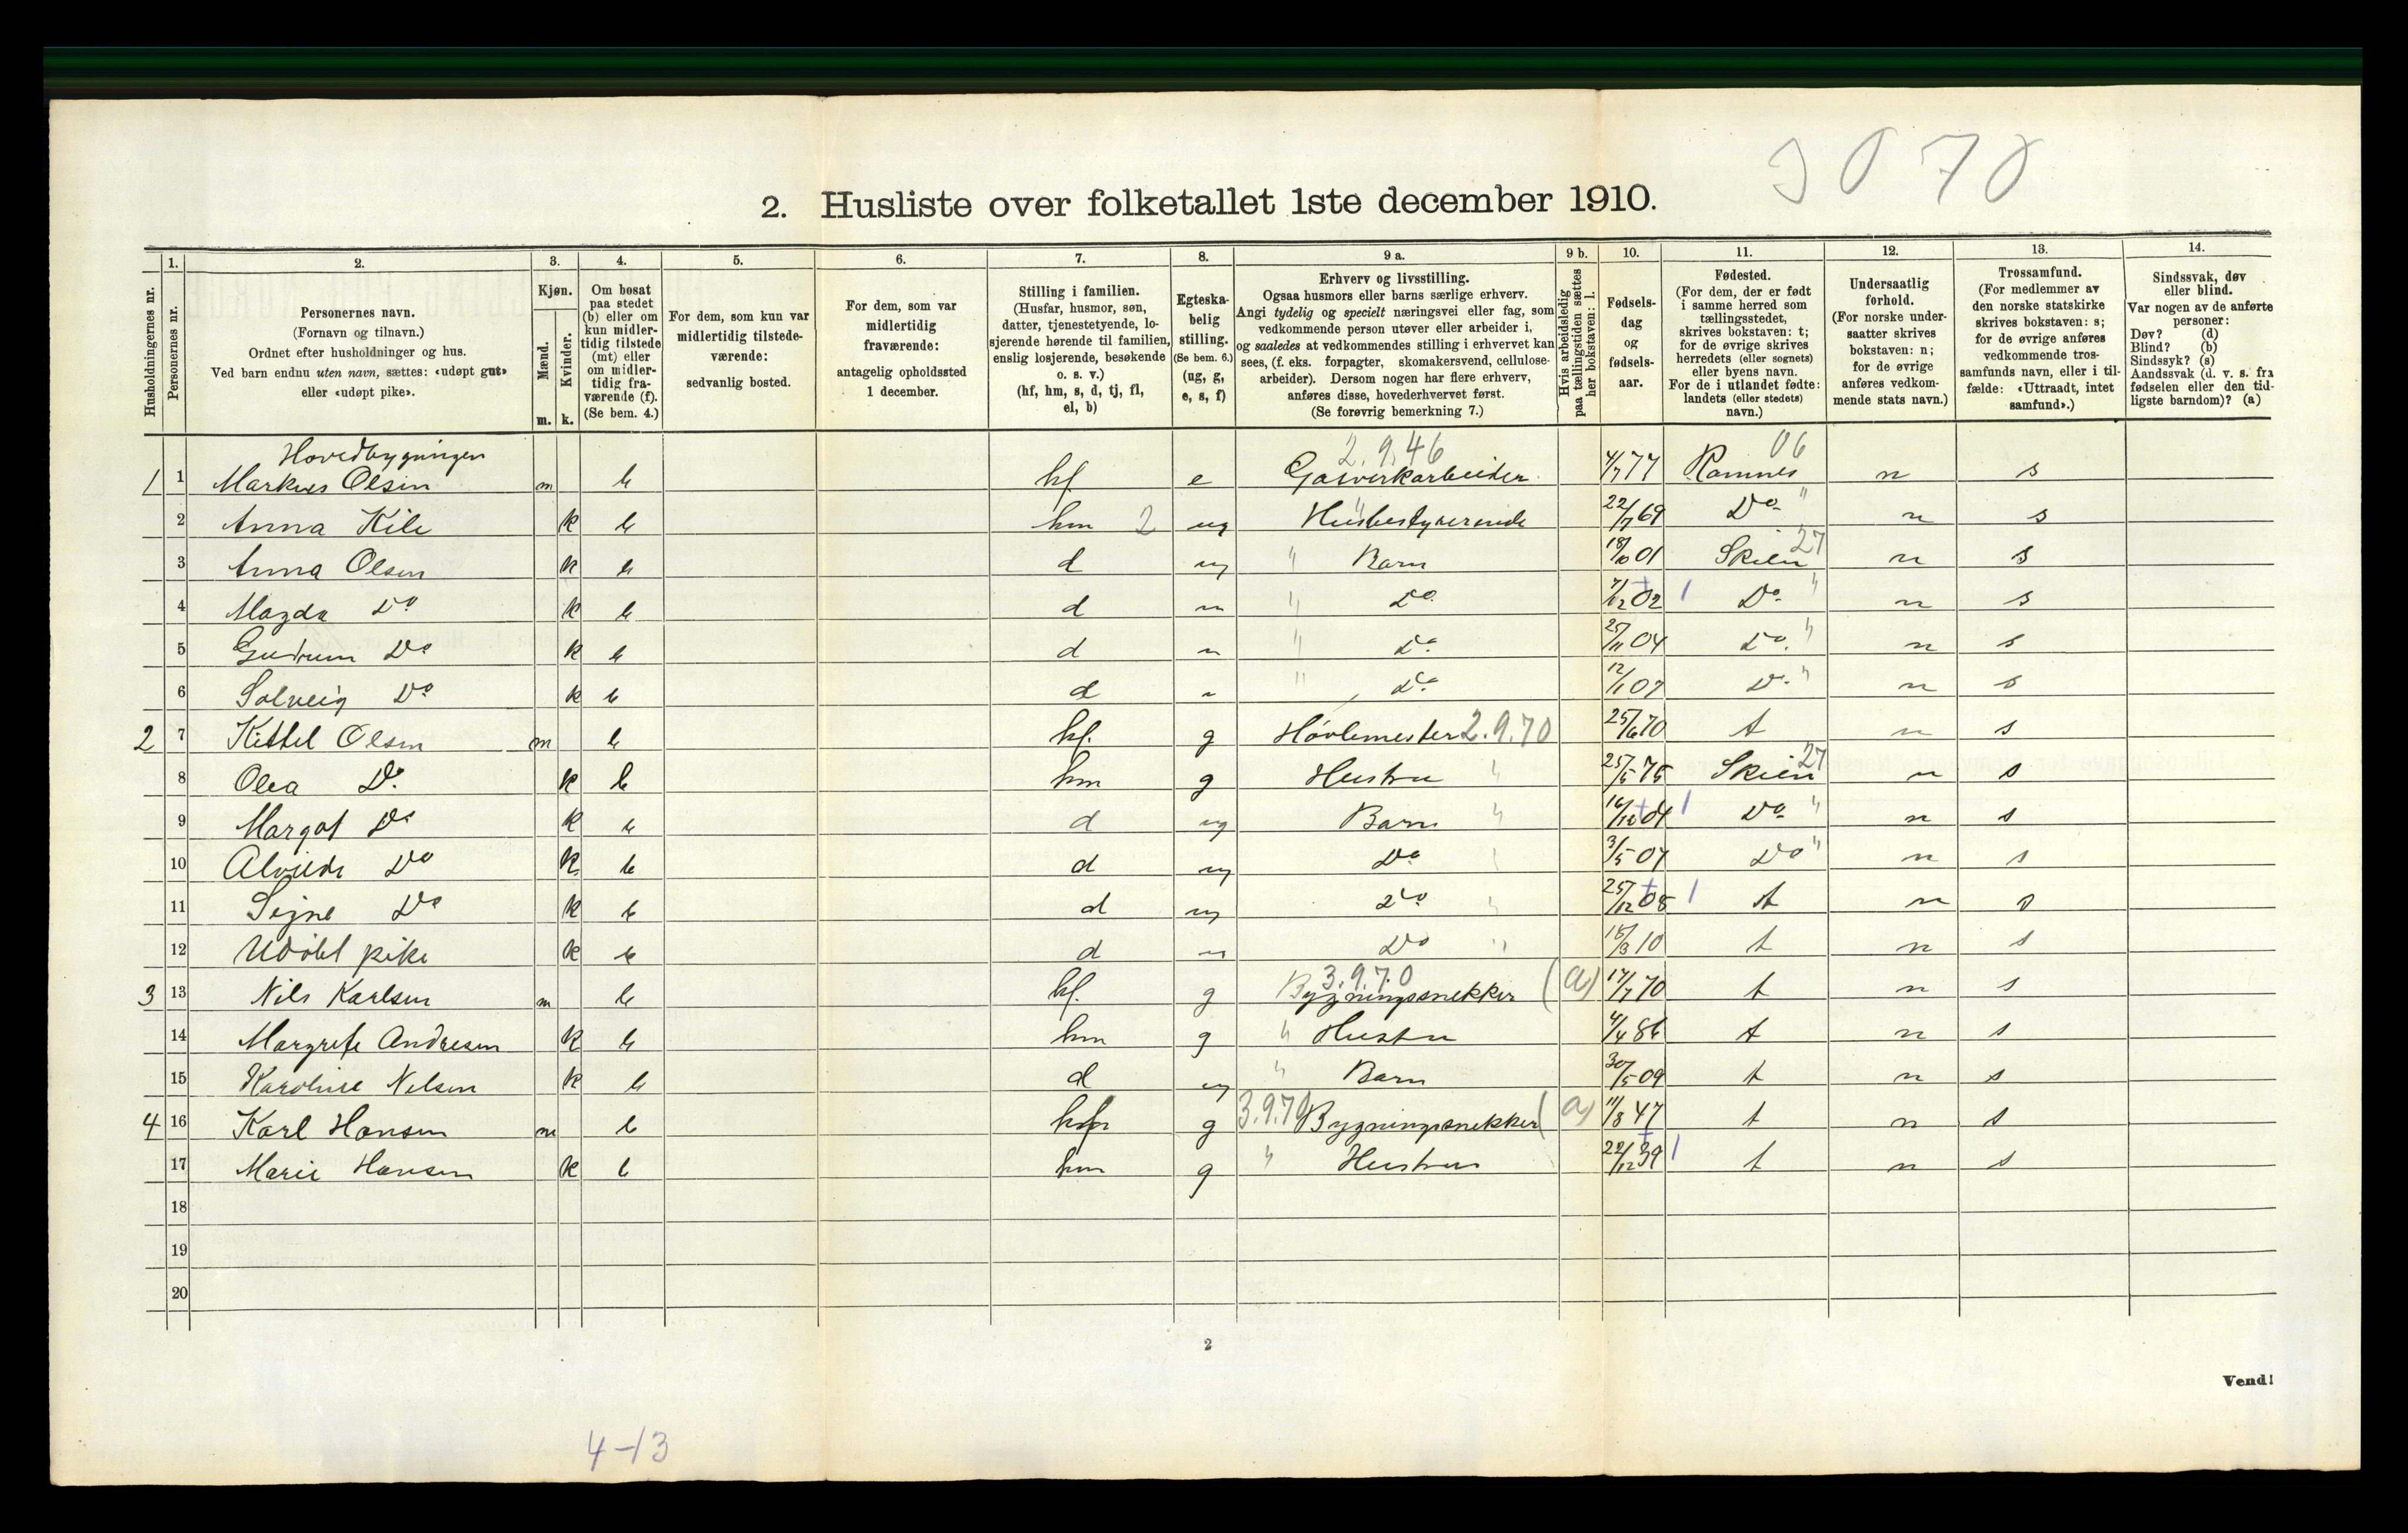 3070
2. Husliste over folketallet 1ste december 1910.
1. 2. 3. 4. 5. 6. 7. 8. 9 a. 9 b. 10. 11. 12. 13. 14.
Husholdningernes nr.
Personernes nr.
Personernes navn.
(Fornavn og tilnavn.)
Ordnet efter husholdninger og hus.
Ved barn endnu uten navn, sættes: «udøpt gut»
eller «udøpt pike».
Kjøn.
Mænd.
Kvinder.
m. k.
Om bosat
paa stedet
(b) eller om
kun midler-
tidig tilstede
(mt) eller
om midler-
tidig fra-
værende (f).
(Se bem. 4.)
For dem, som kun var
midlertidig tilstede-
værende:
sedvanlig bosted.
For dem, som var
midlertidig
fraværende:
antagelig opholdssted
1 december.
Stilling i familien.
(Husfar, husmor, søn,
datter, tjenestetyende, lo-
sjerende hørende til familien,
enslig losjerende, besøkende
o. s. v.)
(hf, hm, s, d, tj, fl,
el, b)
Egteska-
belig
stilling.
(Se bem. 6.)
(ug, g,
e, s, f)
Erhverv og livsstilling.
Ogsaa husmors eller barns særlige erhverv.
Angi tydelig og specielt næringsvei eller fag, som
vedkommende person utøver eller arbeider i,
og saaledes at vedkommendes stilling i erhvervet kan
sees, (f. eks. forpagter, skomakersvend, cellulose-
arbeider). Dersom nogen har flere erhverv,
anføres disse, hovederhvervet først.
(Se forøvrig bemerkning 7.)
Hvis arbeidsledig
paa tællingstiden sættes
her bokstaven: l.
Fødsels-
dag
og
fødsels-
aar.
Fødested.
(For dem, der er født
i samme herred som
tællingsstedet,
skrives bokstaven: t;
for de øvrige skrives
herredets (eller sognets)
eller byens navn.
For de i utlandet fødte:
landets (eller stedets)
navn.)
Undersaatlig
forhold.
(For norske under-
saatter skrives
bokstaven: n;
for de øvrige
anføres vedkom-
mende stats navn.)
Trossamfund.
(For medlemmer av
den norske statskirke
skrives bokstaven: s;
for de øvrige anføres
vedkommende tros-
samfunds navn, eller i til-
fælde: «Uttraadt, intet
samfund».)
Sindssvak, døv
eller blind.
Var nogen av de anførte
personer:
Døv? (d)
Blind? (b)
Sindssyk? (s)
Aandssvak (d. v. s. fra
fødselen eller den tid-
ligste barndom)? (a)
Hovedbygningen 2.9.46 06
1 1 Markus Olsen m b hf e Gasverkarbeider 4/7 77 Ramnes n s
2 Anna Kile k b hm 2 ug Husbestyrerinde 22/7 69 Do " n s
3 Anna Olsen k b d ug " Barn 18/10 01 Skien 27 n s
4 Magda Do k b d " " Do 7/12 02 1 Do " n s
5 Gudrun Do k b d " " Do 25/11 04 Do " n s
6 Solveig Do k b d " " Do 12/1 07 Do " n s
2 7 Kittel Olsen m b hf. g Høvlemester 2.9.70 25/6 70 t n s
8 Olea Do k b hm g Hustru " 25/5 75 Skien 27 n s
9 Margot Do k b d ug Barn " 16/12 04 1 Do " n s
10 Alvilde Do k b d ug Do " 3/5 07 Do " n s
11 Signe Do k b d ug Do " 25/12 08 1 t n s
12 Udøbt pike k b d " Do " 15/3 10 t n s
3 13 Nils Karlsen m b hf. g 3.9.70 Bygningssnekker (a) 17/7 70 t n s
14 Margrete Andresen k b hm g " Hustru 4/4 86 t n s
15 Karoline Nilsen k b d ug " Barn 30/5 09 t n s
4 16 Karl Hansen m b hf g 3.9.70 Bygningssnekker (a) 11/8 47 t n s
17 Marie Hansen k b hm g " Hustru 22/12 39 1 t n s
18
19
20
2
Vend!
4-13